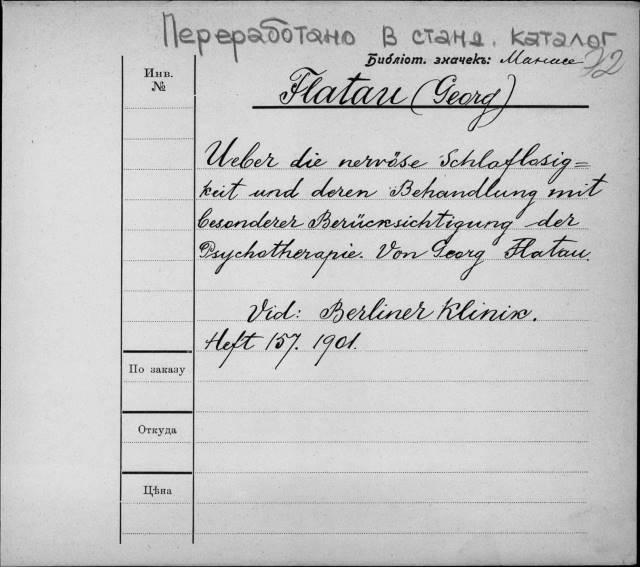 Переработано в станд. каталог
Библіот. значекъ:
Инв.
№
Flatau (Georg)
Ueber die nervöse Schlaflosig=
keit und deren Behandlung mit
besonderer Berücksichtigung der
Psychotherapie. Von Georg Flatau.
Vid: Berliner Klinik.
Heft 157. 1901.
По заказу
Откуда
Цѣна